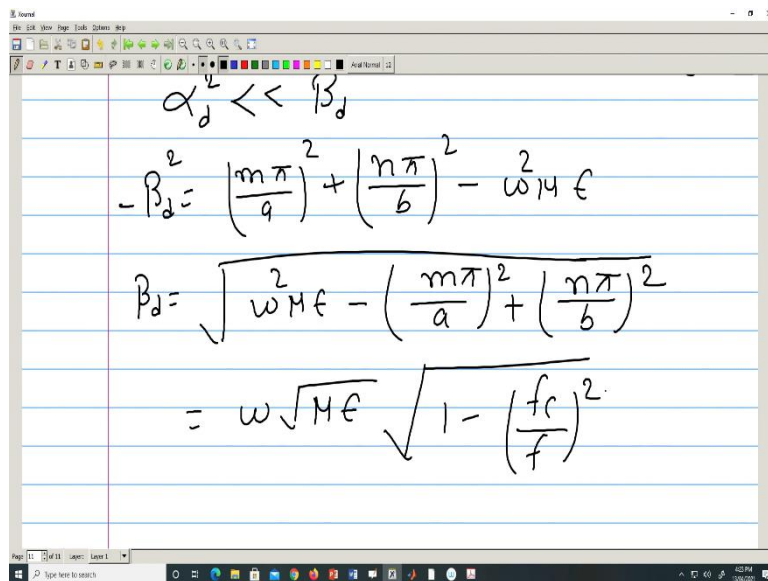 Xournal
File Edit View Page Tools Options Help
Arial Normal 12
α_d² << β_d
-β_d² = (mπ/a)² + (nπ/b)² - ω²με
β_d = √(ω²με - (mπ/a)² + (nπ/b)²)
= ω√με √(1 - (fc/f)²)
Page 11 of 11 Layer: Layer 1
Type here to search
4:23 PM